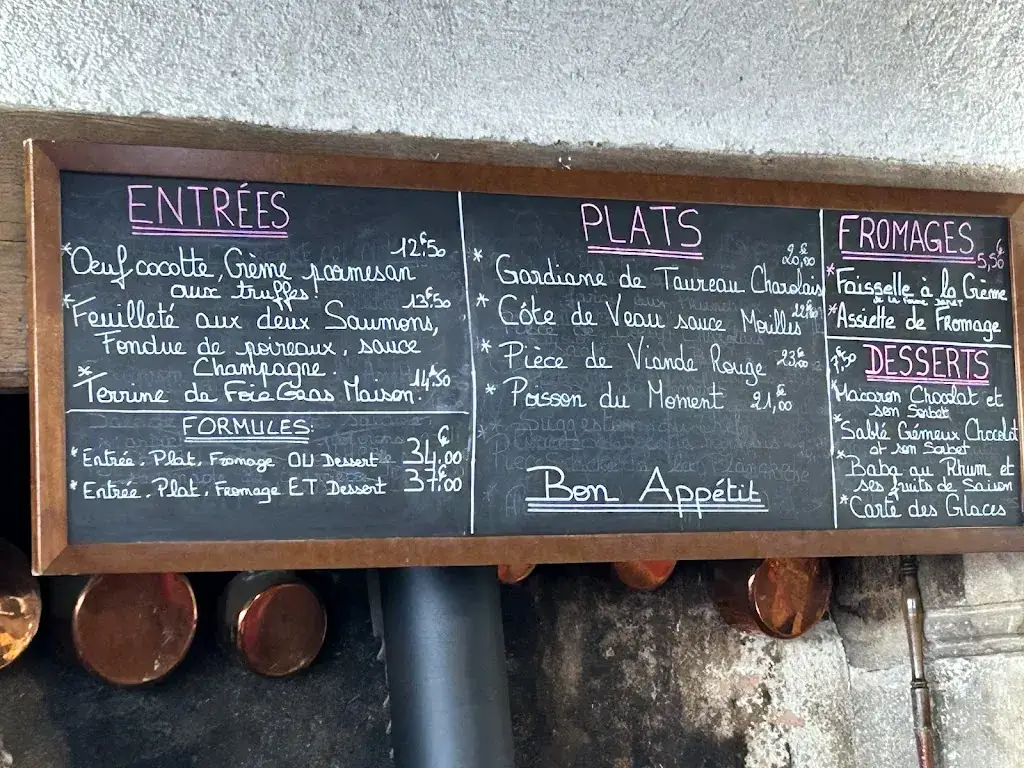 ENTRÉES
* Oeuf cocotte, Crème parmesan 12€50
aux truffes.
* Feuilleté aux deux Saumons, 13€50
Fondue de poireaux, sauce
Champagne.
* Terrine de Foie Gras Maison. 14€50
FORMULES:
* Entrée, Plat, Fromage OU Dessert 34.00€
* Entrée, Plat, Fromage ET Dessert 37.00€
PLATS
* Gardiane de Taureau Charolais 20,00€
* Côte de Veau sauce Morilles
* Pièce de Viande Rouge 23.00€
* Poisson du Moment 21,00€
Bon Appétit
FROMAGES 5,50€
* Faisselle à la Crème
de la Ferme
* Assiette de Fromage
DESSERTS
* Macaron Chocolat et
son Sorbet
* Sablé Crémeux Chocolat
et son Sorbet
* Baba au Rhum et
ses fruits de Saison
* Carte des Glaces